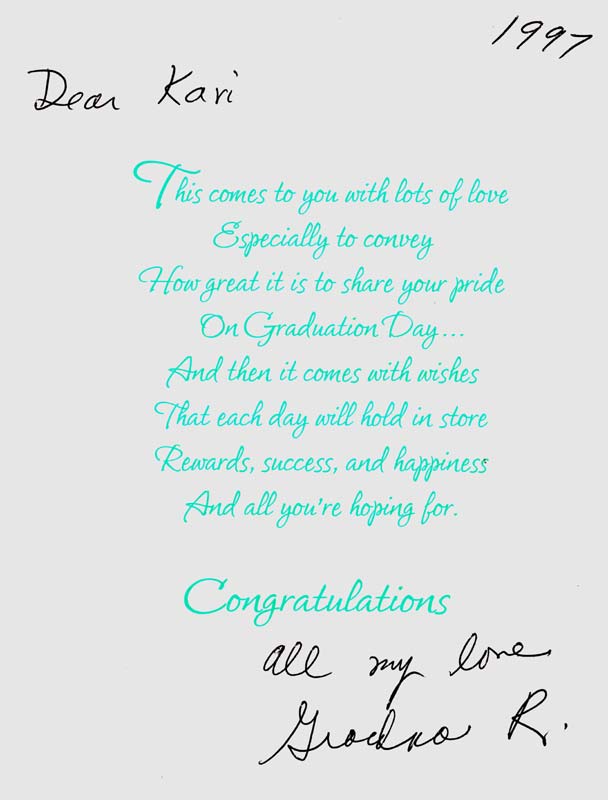 1997
Dear Kari
This comes to you with lots of love
Especially to convey
How great it is to share your pride
On Graduation Day...
And then it comes with wishes
That each day will hold in store
Rewards, success, and happiness
And all you're hoping for.
Congratulations
all my love
Grandma R.